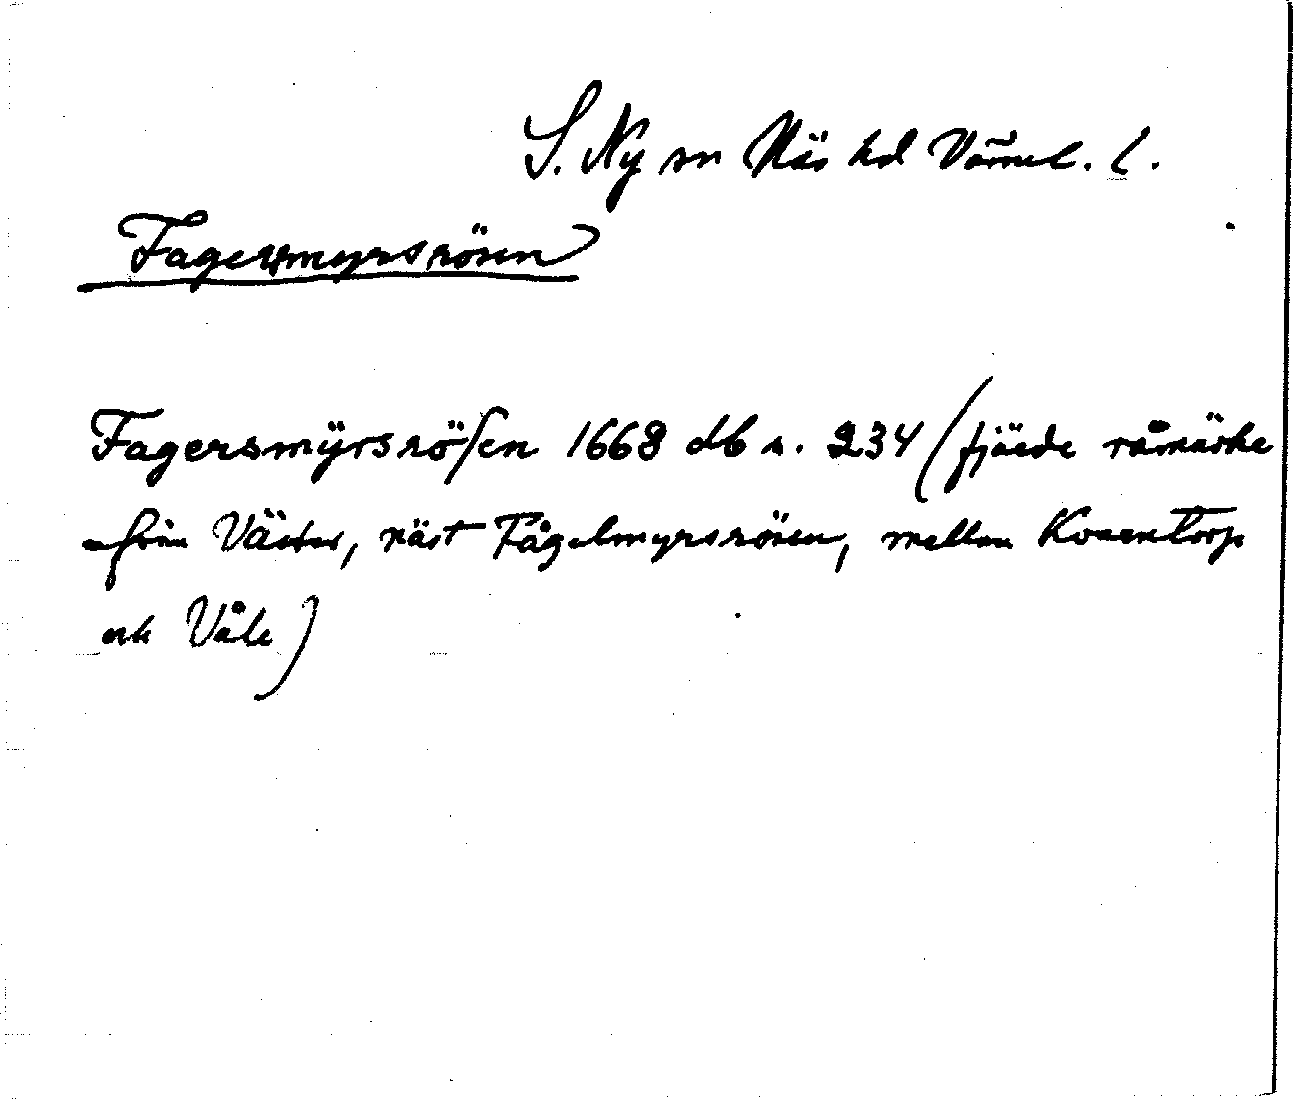 S. Ny sn Näs hd Värml. l.
Fagersmyrsrösen
Fagersmÿrsröſen 1668 db s. 234 (fjärde råmärke
från Väster, näst Fågelmyrsrösen, mellan
och Våle)